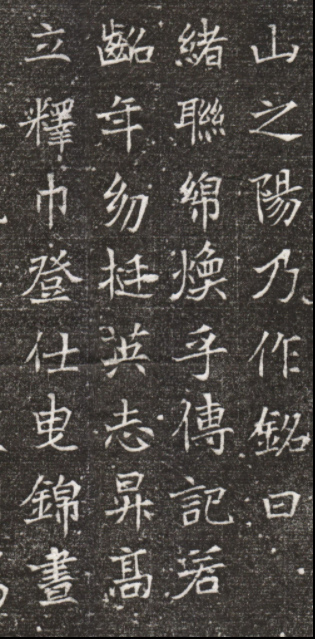 山之陽乃作銘曰
緒聯綿煥乎傳記若
齠年幼挺英志昇高
立釋巾登仕曳錦晝